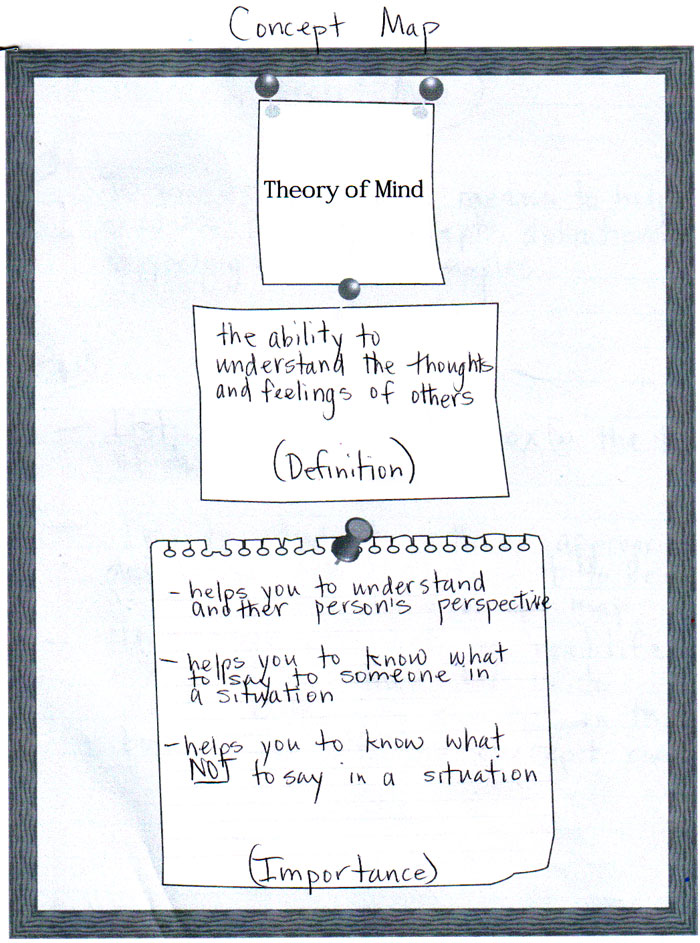 Concept Map
Theory of Mind
the ability to
understand the thoughts
and feelings of others
(Definition)
- helps you to understand
another person's perspective
- helps you to know what
to say to someone in
a situation
- helps you to know what
NOT to say in a situation
(Importance)